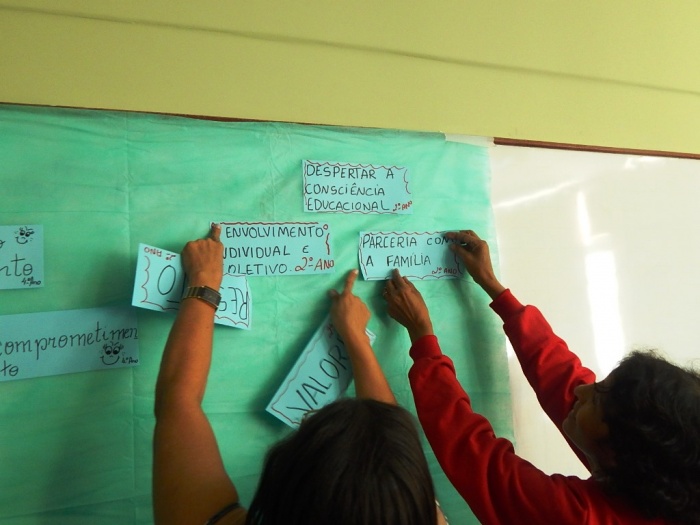 DESPERTAR A
CONSCIÊNCIA
EDUCACIONAL 2º ANO
ENVOLVIMENTO
INDIVIDUAL E
COLETIVO. 2º ANO
PARCERIA COM
A FAMÍLIA
2º ANO
nto
4º Ano
comprometimen
to
4º Ano
RES
O
VALORI